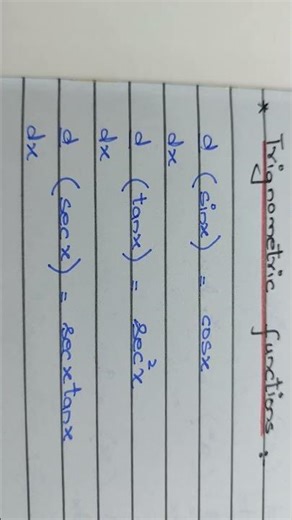 * Trignometric functions :-
d (sinx) = cosx
dx
d (tanx) = sec²x
dx
d (secx) = secxtanx
dx